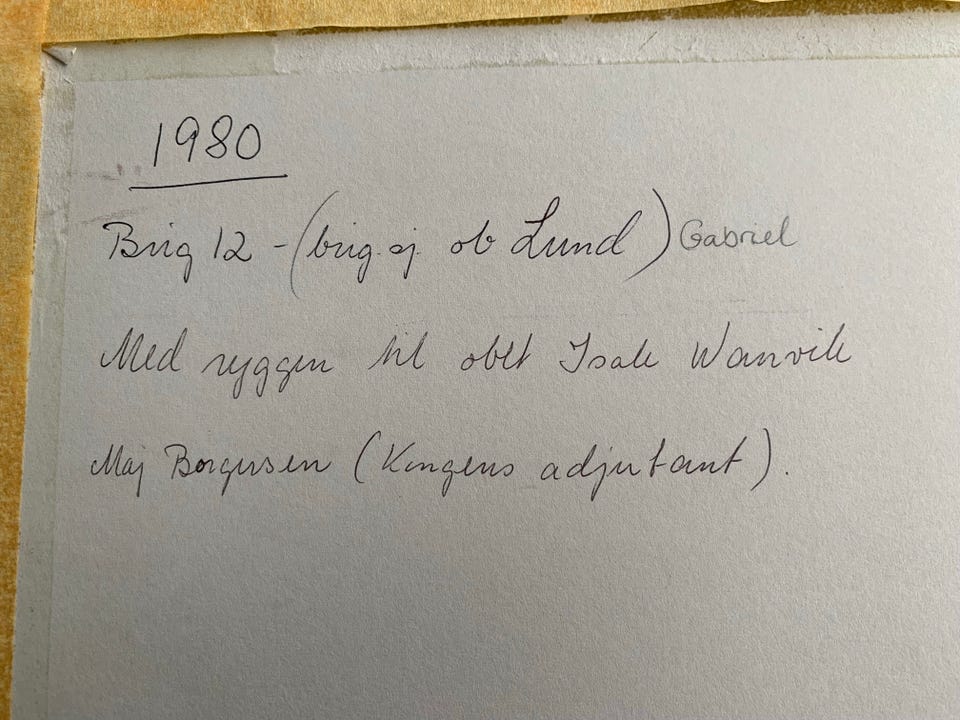 1980
Brig 12 - (brig.sj. ob Lund) Gabriel
Med ryggen til oblt Isak Wanvik
Maj Borgersen (Kongens adjutant).